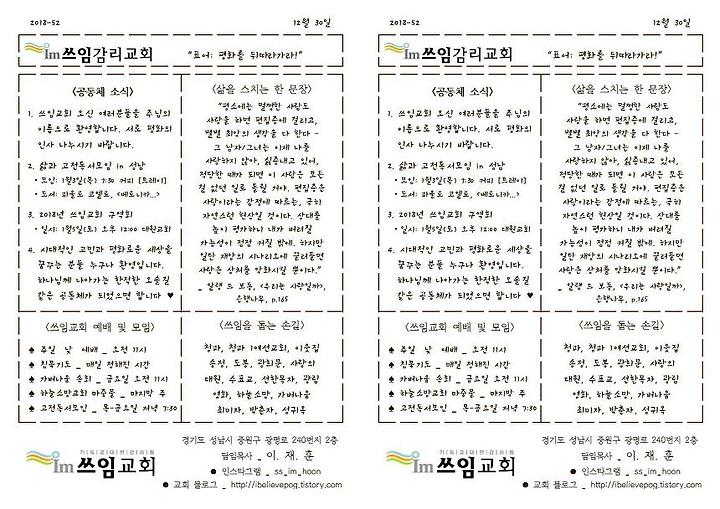 2018-52
12월 30일
Im 쓰임감리교회
"표어: 평화를 뒤따라가라!"
<공동체 소식>
1. 쓰임교회 오신 여러분들을 주님의
이름으로 환영합니다. 서로 평화의
인사 나누시기 바랍니다.
2. 삶과 고전독서모임 in 성남
• 모임: 1월3일(목) 7:30 커피 [트레이]
• 도서: 파울로 코엘료, <베로니카...>
3. 2018년 쓰임교회 구역회
• 일시: 1월5일(토) 오후 12:00 대원교회
4. 시대적인 고민과 평화로운 세상을
꿈꾸는 분들 누구나 환영입니다.
하나님께 나아가는 한적한 오솔길
같은 공동체가 되었으면 합니다 ♥
<삶을 스치는 한 문장>
"평소에는 멀쩡한 사람도
사랑을 하면 편집증에 걸리고,
별별 희망의 생각을 다 한다 -
그 남자/그녀는 이제 나를
사랑하지 않아, 싫증내고 있어,
적당한 때가 되면 이 사랑은 모든
걸 없던 일로 돌릴 거야. 편집증은
사랑이라는 감정에 따르는, 극히
자연스런 현상일 것이다. 상대를
높이 평가하니 내가 버려질
가능성이 점점 커질 밖에. 하지만
일단 재앙의 시나리오에 끌려들면
사랑은 상처를 악화시킬 뿐이다."
_ 알랭 드 보통, <우리는 사랑일까>,
은행나무, p.165
<쓰임교회 예배 및 모임>
♠ 주일 낮 예배 _ 오전 11시
♠ 침묵기도 _ 매일 정해진 시간
♠ 가버나움 순회 _ 금요일 오전 11시
♠ 하늘소망교회 마중물 _ 마지막 주
♠ 고전독서모임 _ 목-금요일 저녁 7:30
<쓰임을 돕는 손길>
청파, 청파 1여선교회, 이웃집
송정, 도봉, 광희문, 사랑의
대원, 수표교, 선한목자, 광림
영화, 하늘소망, 가버나움
최미자, 박춘자, 성귀옥
기독교대한감리회
Im 쓰임교회
경기도 성남시 중원구 광명로 240번지 2층
담임목사 _ 이 재 훈
● 인스타그램 _ ss_im_hoon
● 교회 블로그 _ http://ibelievepog.tistory.com
2018-52
12월 30일
Im 쓰임감리교회
"표어: 평화를 뒤따라가라!"
<공동체 소식>
1. 쓰임교회 오신 여러분들을 주님의
이름으로 환영합니다. 서로 평화의
인사 나누시기 바랍니다.
2. 삶과 고전독서모임 in 성남
• 모임: 1월3일(목) 7:30 커피 [트레이]
• 도서: 파울로 코엘료, <베로니카...>
3. 2018년 쓰임교회 구역회
• 일시: 1월5일(토) 오후 12:00 대원교회
4. 시대적인 고민과 평화로운 세상을
꿈꾸는 분들 누구나 환영입니다.
하나님께 나아가는 한적한 오솔길
같은 공동체가 되었으면 합니다 ♥
<삶을 스치는 한 문장>
"평소에는 멀쩡한 사람도
사랑을 하면 편집증에 걸리고,
별별 희망의 생각을 다 한다 -
그 남자/그녀는 이제 나를
사랑하지 않아, 싫증내고 있어,
적당한 때가 되면 이 사랑은 모든
걸 없던 일로 돌릴 거야. 편집증은
사랑이라는 감정에 따르는, 극히
자연스런 현상일 것이다. 상대를
높이 평가하니 내가 버려질
가능성이 점점 커질 밖에. 하지만
일단 재앙의 시나리오에 끌려들면
사랑은 상처를 악화시킬 뿐이다."
_ 알랭 드 보통, <우리는 사랑일까>,
은행나무, p.165
<쓰임교회 예배 및 모임>
♠ 주일 낮 예배 _ 오전 11시
♠ 침묵기도 _ 매일 정해진 시간
♠ 가버나움 순회 _ 금요일 오전 11시
♠ 하늘소망교회 마중물 _ 마지막 주
♠ 고전독서모임 _ 목-금요일 저녁 7:30
<쓰임을 돕는 손길>
청파, 청파 1여선교회, 이웃집
송정, 도봉, 광희문, 사랑의
대원, 수표교, 선한목자, 광림
영화, 하늘소망, 가버나움
최미자, 박춘자, 성귀옥
기독교대한감리회
Im 쓰임교회
경기도 성남시 중원구 광명로 240번지 2층
담임목사 _ 이 재 훈
● 인스타그램 _ ss_im_hoon
● 교회 블로그 _ http://ibelievepog.tistory.com